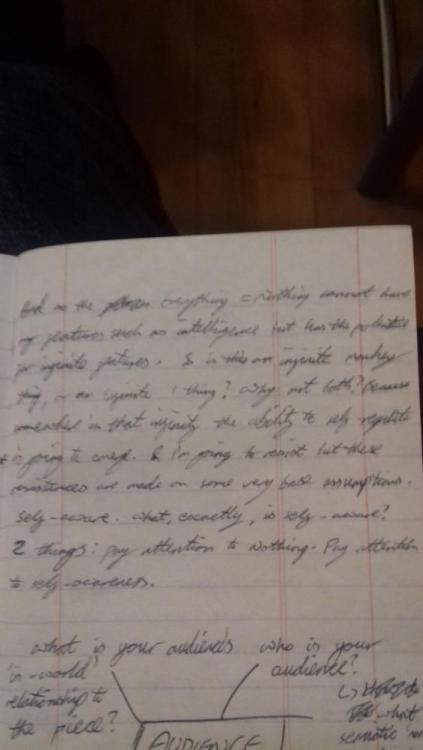 God as the Everything = Nothing cannot have
my features such as intelligence but has the potential
for infinite features. So is this an infinite monkey
thing, or an infinite 1 thing? Why not both? Because
somewhere in that infinity the ability to self regulate
is going to emerge. & I'm going to resist but these
resistances are made on some very base assumptions.
self-aware. what, exactly, is self-aware?
2 things: pay attention to Nothing. Pay attention
to self-awareness.
what is your audience's who is your
'in-world' audience?
relationship to
the piece? what
AUDIENCE semantic